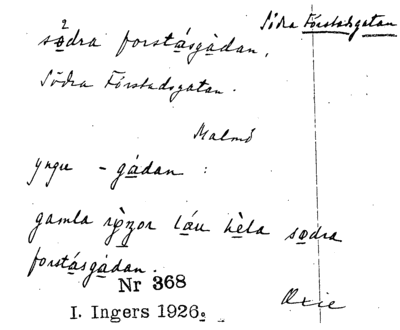 Södra Förstadsgatan
södra forstásgàdan,
Södra Förstadsgatan.
Malmö
yngu - gàdan :
gamla láu hèla södra
forstásgàdan.
Nr 368
I. Ingers 1926.
Oxie